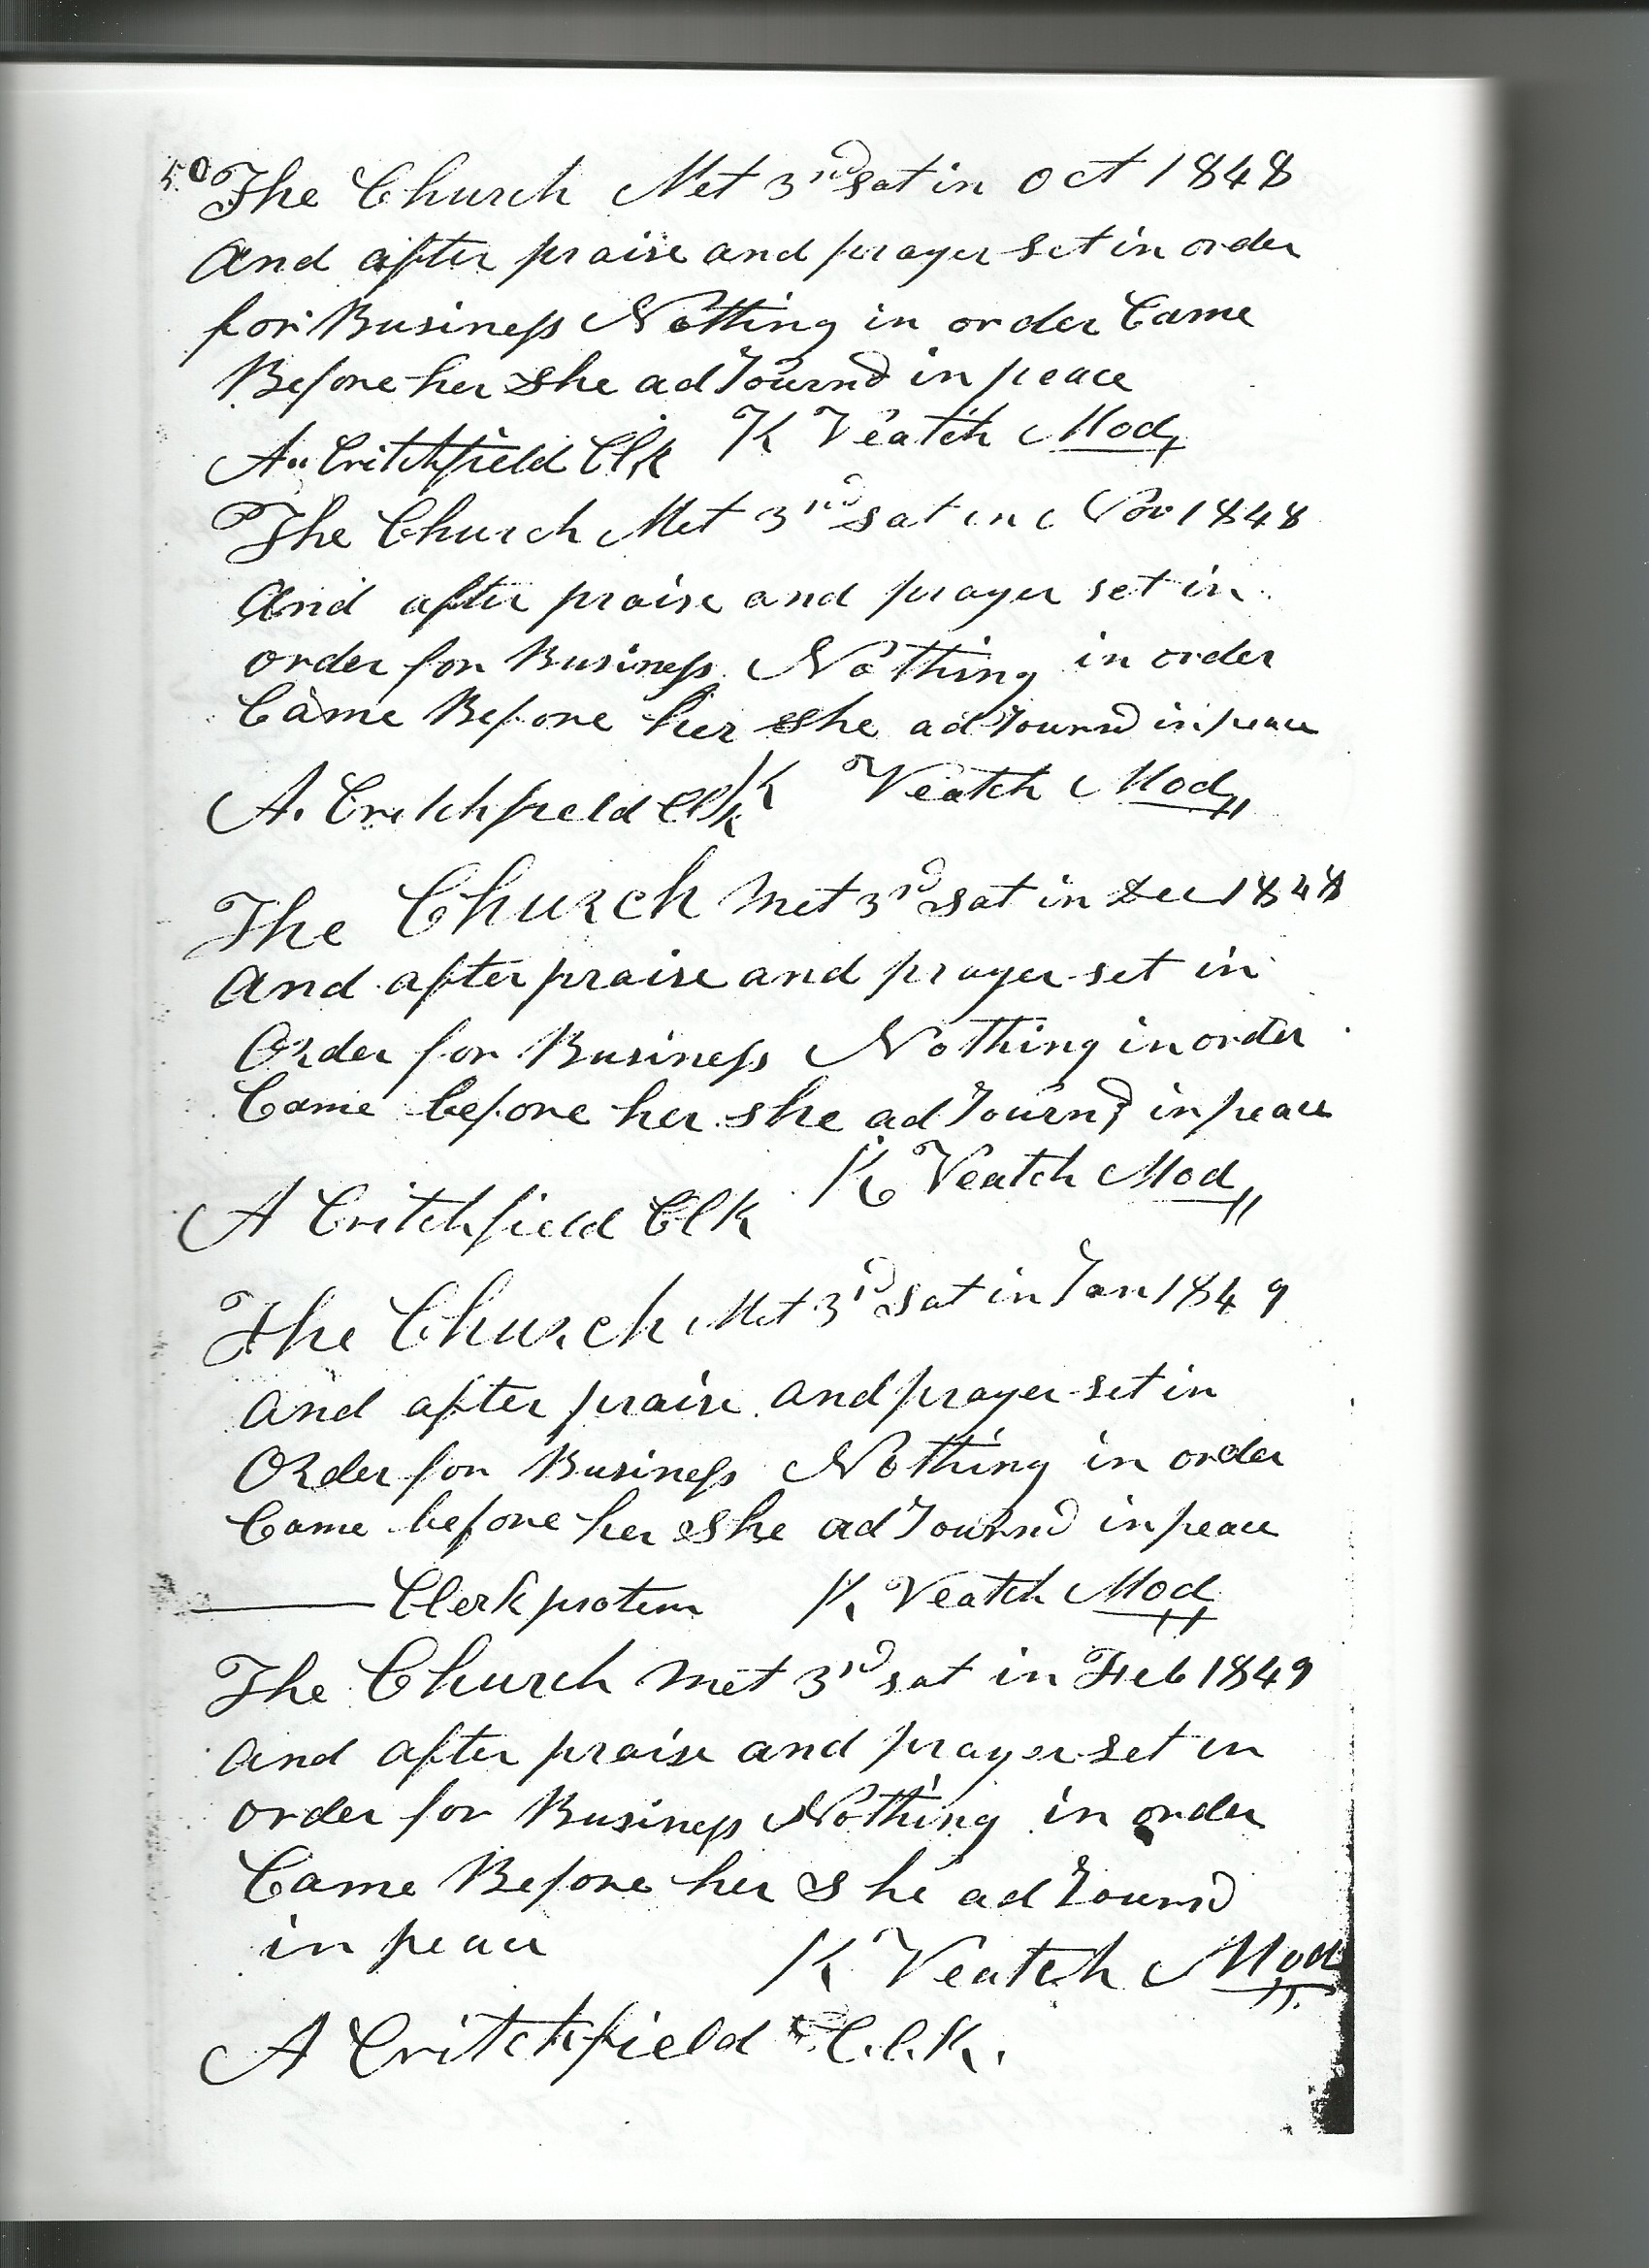 50
The Church Met 3rd sat in Oct 1848
And after praise and prayer set in order
for Business Nothing in order Came
Before her She adJournd in peace
A.. Critchfield Clk K Veatch Mod
The Church Met 3rd sat in Nov 1848
And after praise and prayer set in
order for Business Nothing in order
Came Before her She adJournd in peace
A. Critchfield Clk K Veatch Mod
The Church Met 3rd Sat in Dec 1848
And after praise and prayer set in
Order for Business Nothing in order
Came before her she adJournd in peace
K Veatch Mod
A Critchfield Clk
The Church Met 3rd Sat in Jan 1849
And after praise and prayer set in
Order for Business Nothing in order
Came before her She adJournd in peace
Clerk protem K Veatch Mod
The Church Met 3rd sat in Feb 1849
And after praise and prayer set in
order for Business Nothing in order
Came Before her She adJournd
in peace
K Veatch Mod
A Critchfield C.l.K.